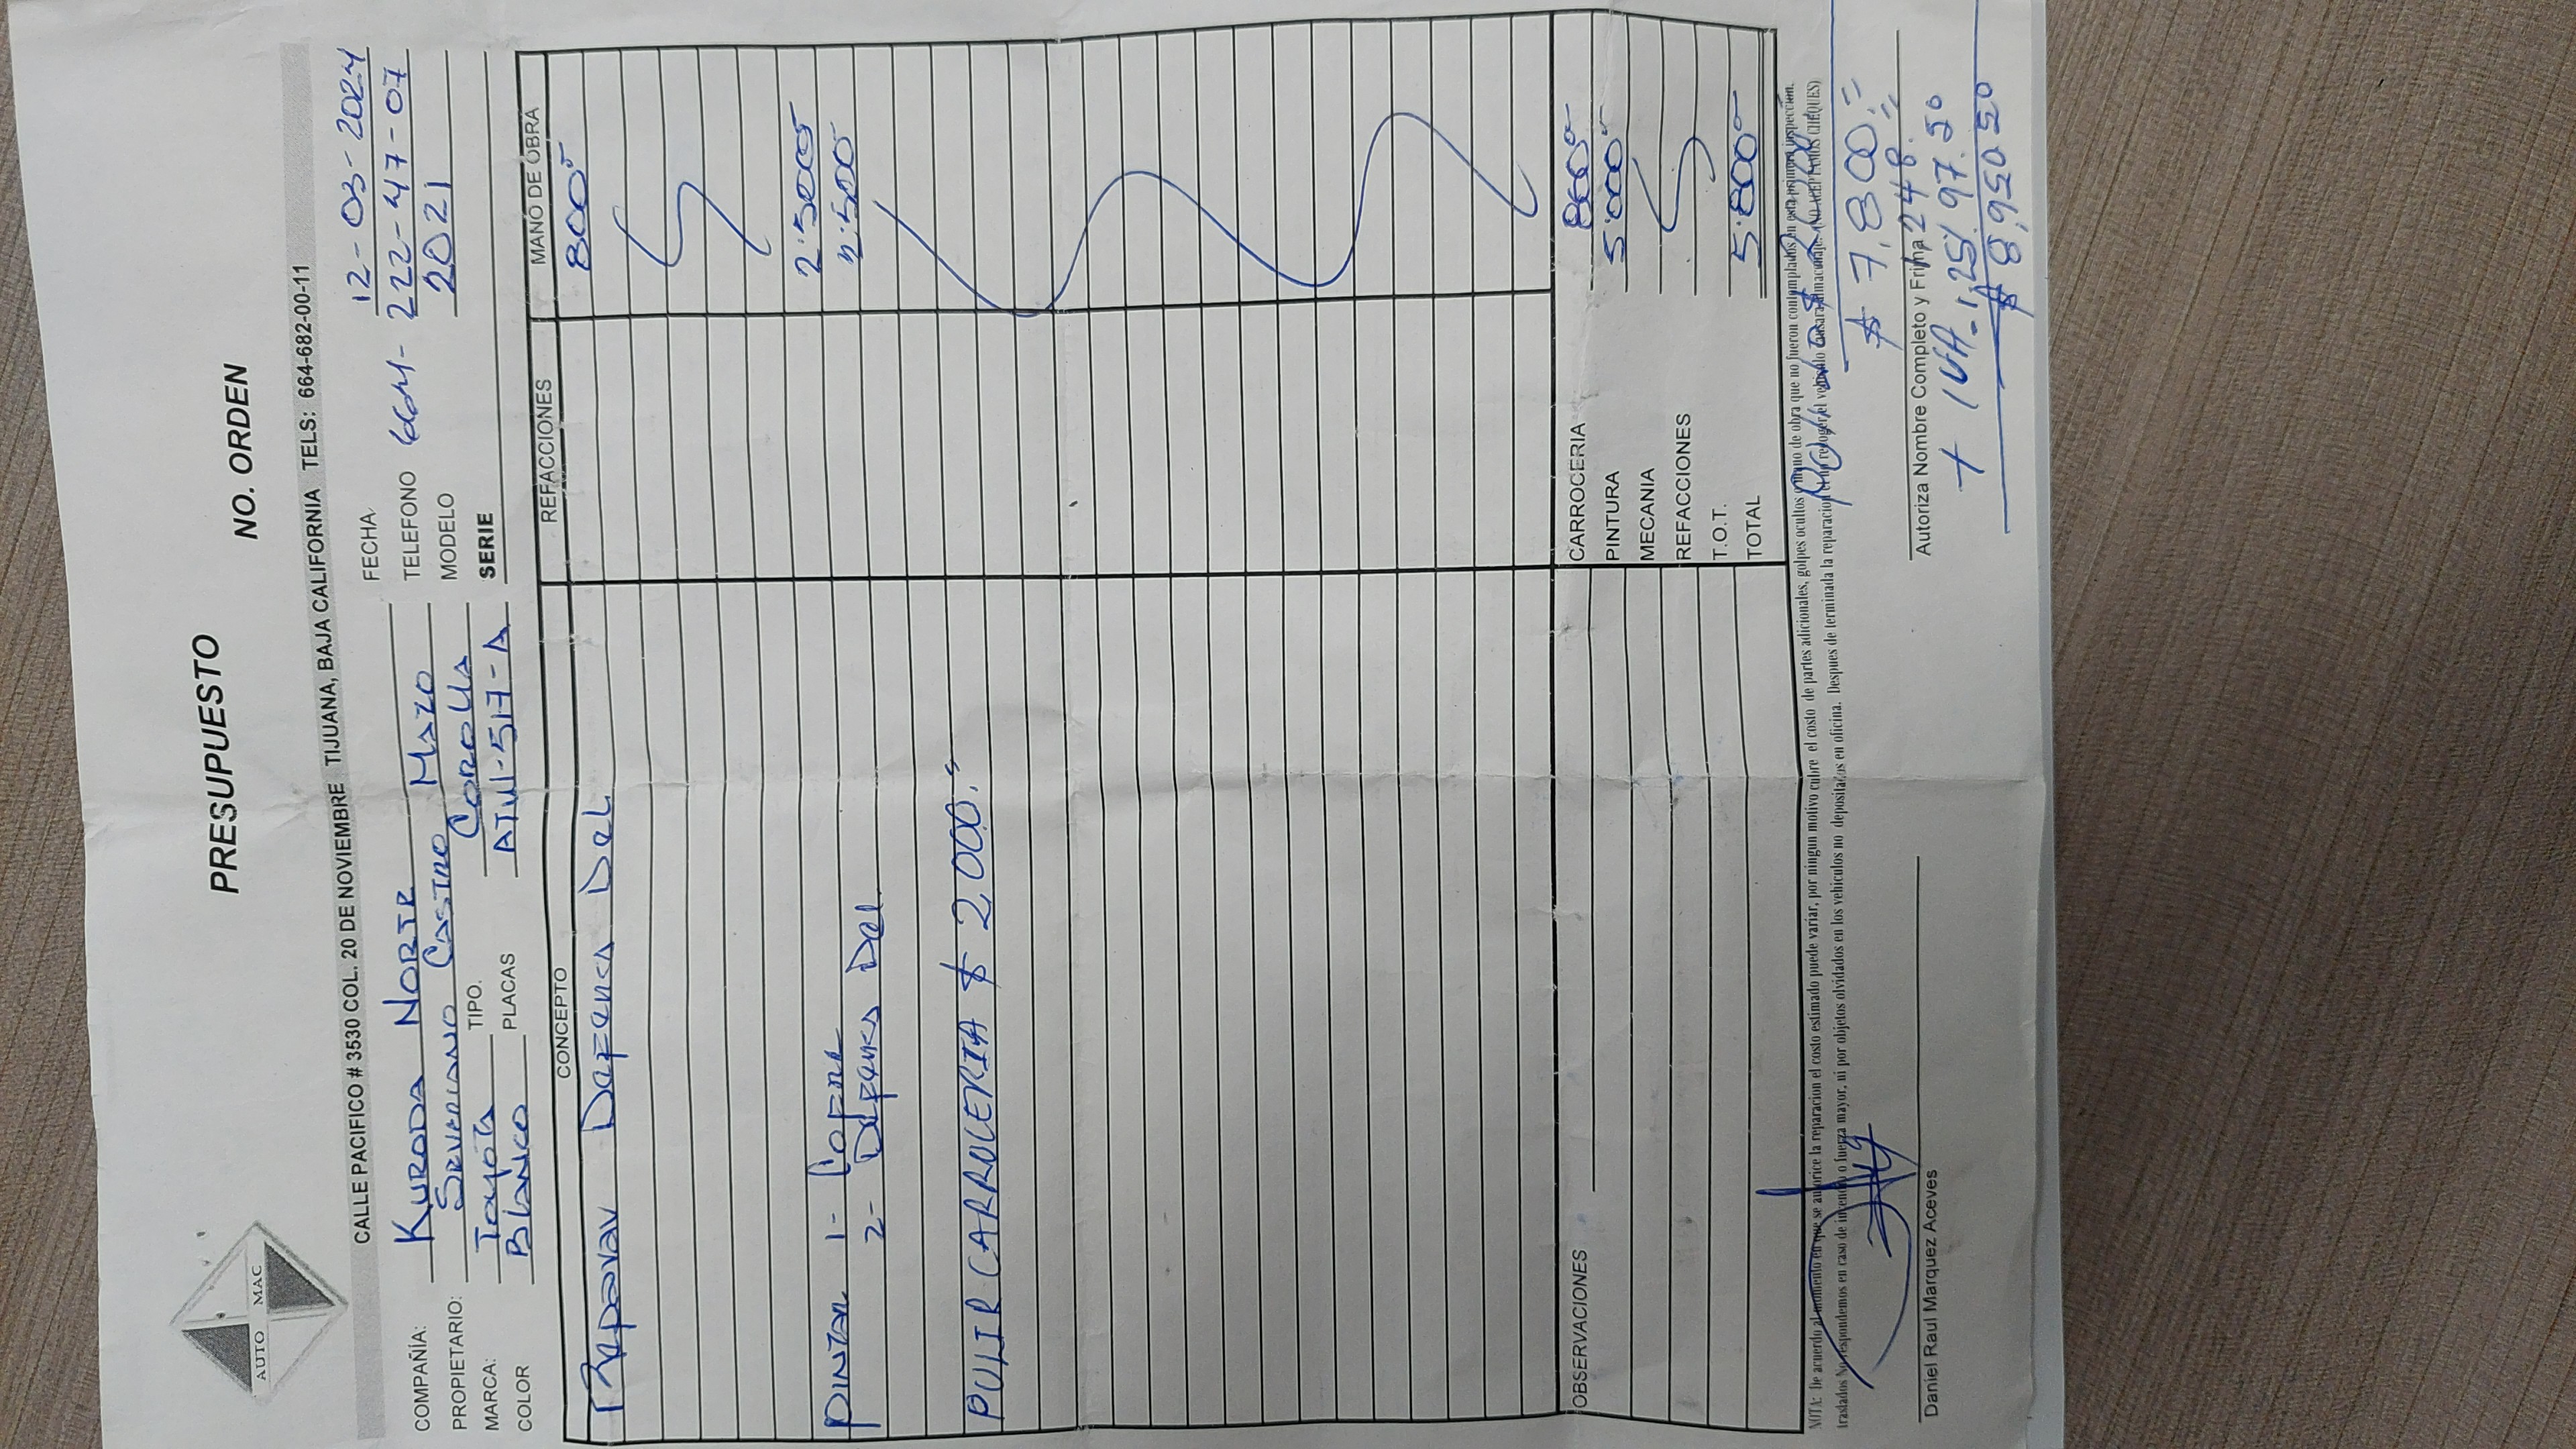 AUTO MAC
PRESUPUESTO NO. ORDEN
CALLE PACIFICO # 3530 COL. 20 DE NOVIEMBRE TIJUANA, BAJA CALIFORNIA TELS: 664-682-00-11
COMPAÑIA: KURODA NORTE FECHA 12-03-2024
PROPIETARIO: SEVERIANO CASTRO MAZO TELEFONO 664-222-47-07
MARCA: Toyota TIPO. COROLLA MODELO 2021
COLOR BLANCO PLACAS SERIE
CONCEPTO REFACCIONES MANO DE OBRA
Reparar Defensa Del 800
PINTAR 1- COFRE 2.500
2- Defensa Del. 2.500
PULIR CARROCERIA $ 2,000.
OBSERVACIONES CARROCERIA 800
PINTURA 5.000
MECANIA
REFACCIONES
T.O.T.
TOTAL 5.800
NOTA: De acuerdo al momento en que se autorice la reparacion el costo estimado puede variar, por ningun motivo cubre el costo de partes adicionales, golpes ocultos o mano de obra que no fueron contemplados en esta primera inspección.
traslados No respondemos en caso de incendio o fuerza mayor, ni por objetos olvidados en los vehiculos no depositados en oficina. Despues de terminada la reparacion el no recoger el vehiculo causara almacenaje. (NO ACEPTAMOS CHEQUES)
$ 7,800.=
Daniel Raul Marquez Aceves Autoriza Nombre Completo y Frima
1,248.=
+ IVA - 1.25% 97.50
$ 8,950.50